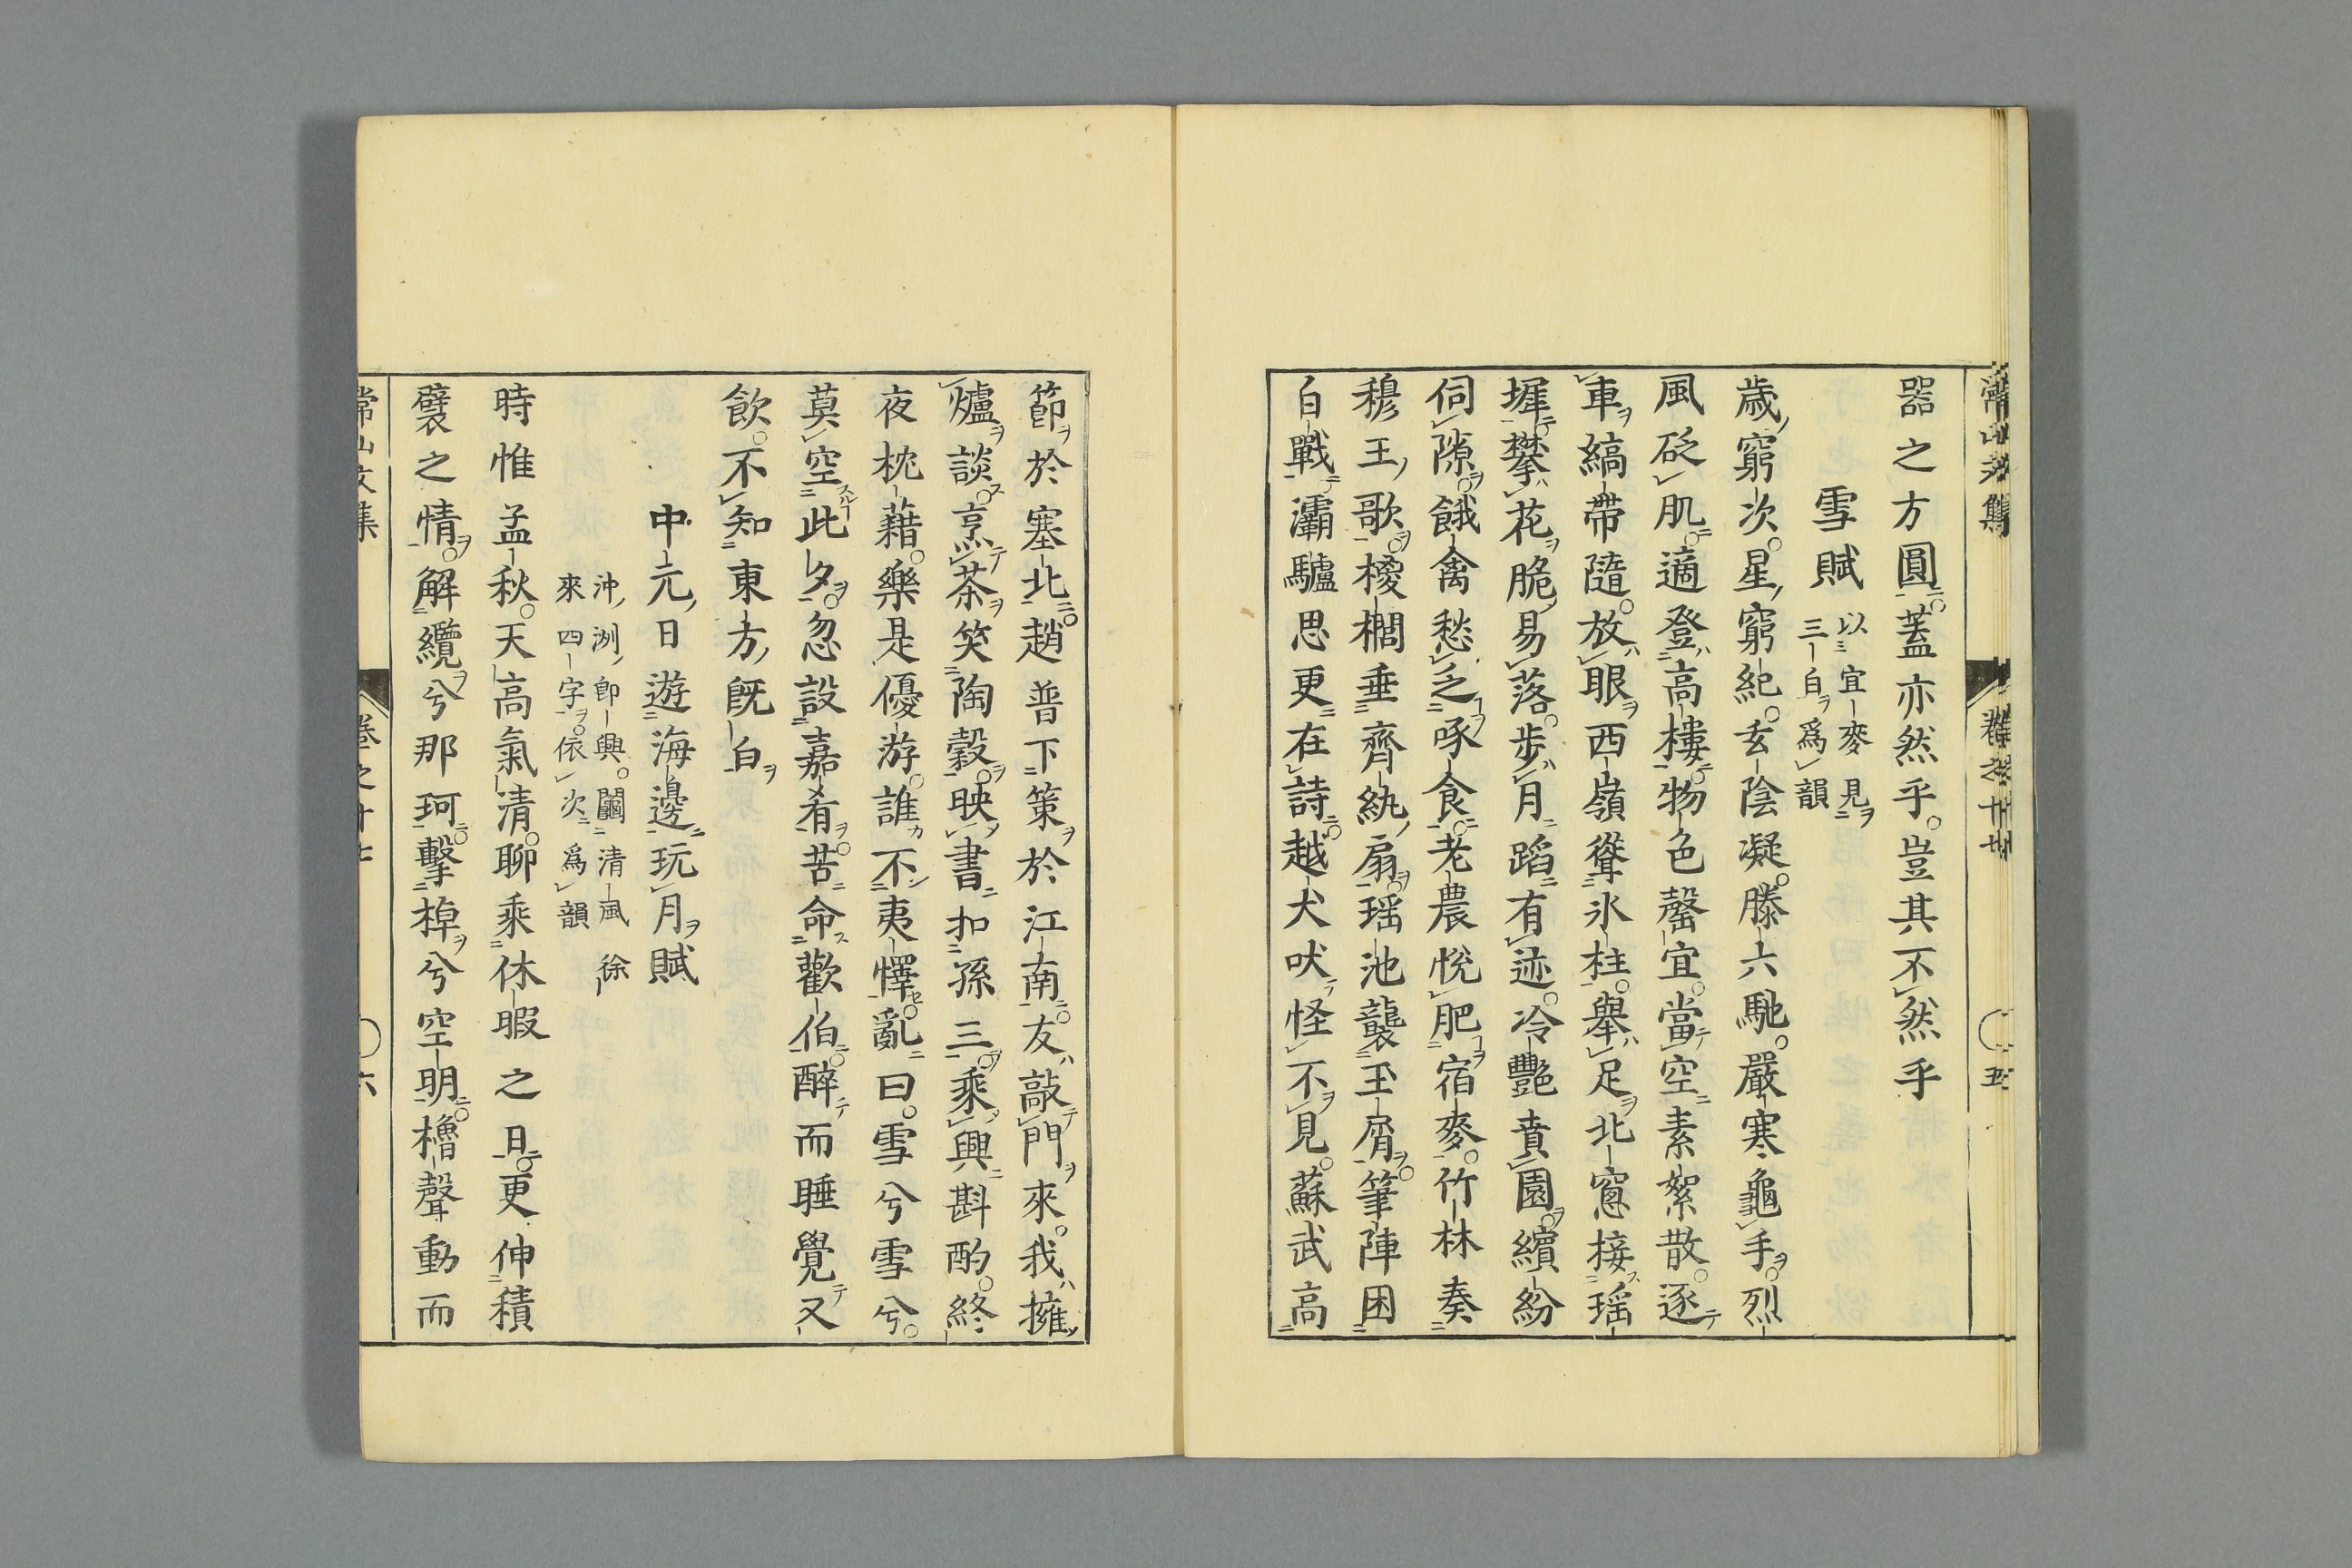 器之方圓蓋亦然乎豈其不然乎
雪賦 以宜麥見
三白爲韻
歳窮次星窮紀玄陰凝滕六馳嚴寒龜手烈
風砭肌適登高樓物色罄宜當空素絮散逐
車縞帶隨放眼西嶺聳氷柱舉足北窻接瑶
墀攀花脆易落歩月蹈有迹冷艷賁園繽紛
伺隙餓禽愁乏啄食老農悅肥宿麥竹林奏
穆王歌櫻櫚垂齊紈扇瑶池襲玉屑筆陣困
白戰灞驢思更在詩越犬吠怪不見蘇武高
節於塞北趙普下策於江南友敲門來我擁
爐談烹茶笑陶穀映書扣孫三乘興斟酌終
夜枕藉樂是優游誰不夷懌亂曰雪兮雪兮
莫空此夕忽設嘉肴苦命歡伯醉而睡覺又
飲不知東方既白
中元日遊海邊玩月賦
沖洌卽興鬭清風徐
來四字依次爲韻
時惟孟秋天高氣清聊乘休暇之日更伸積
襞之情解纜兮那珂擊棹兮空明櫓聲動而
常山文集 卷之十七 六